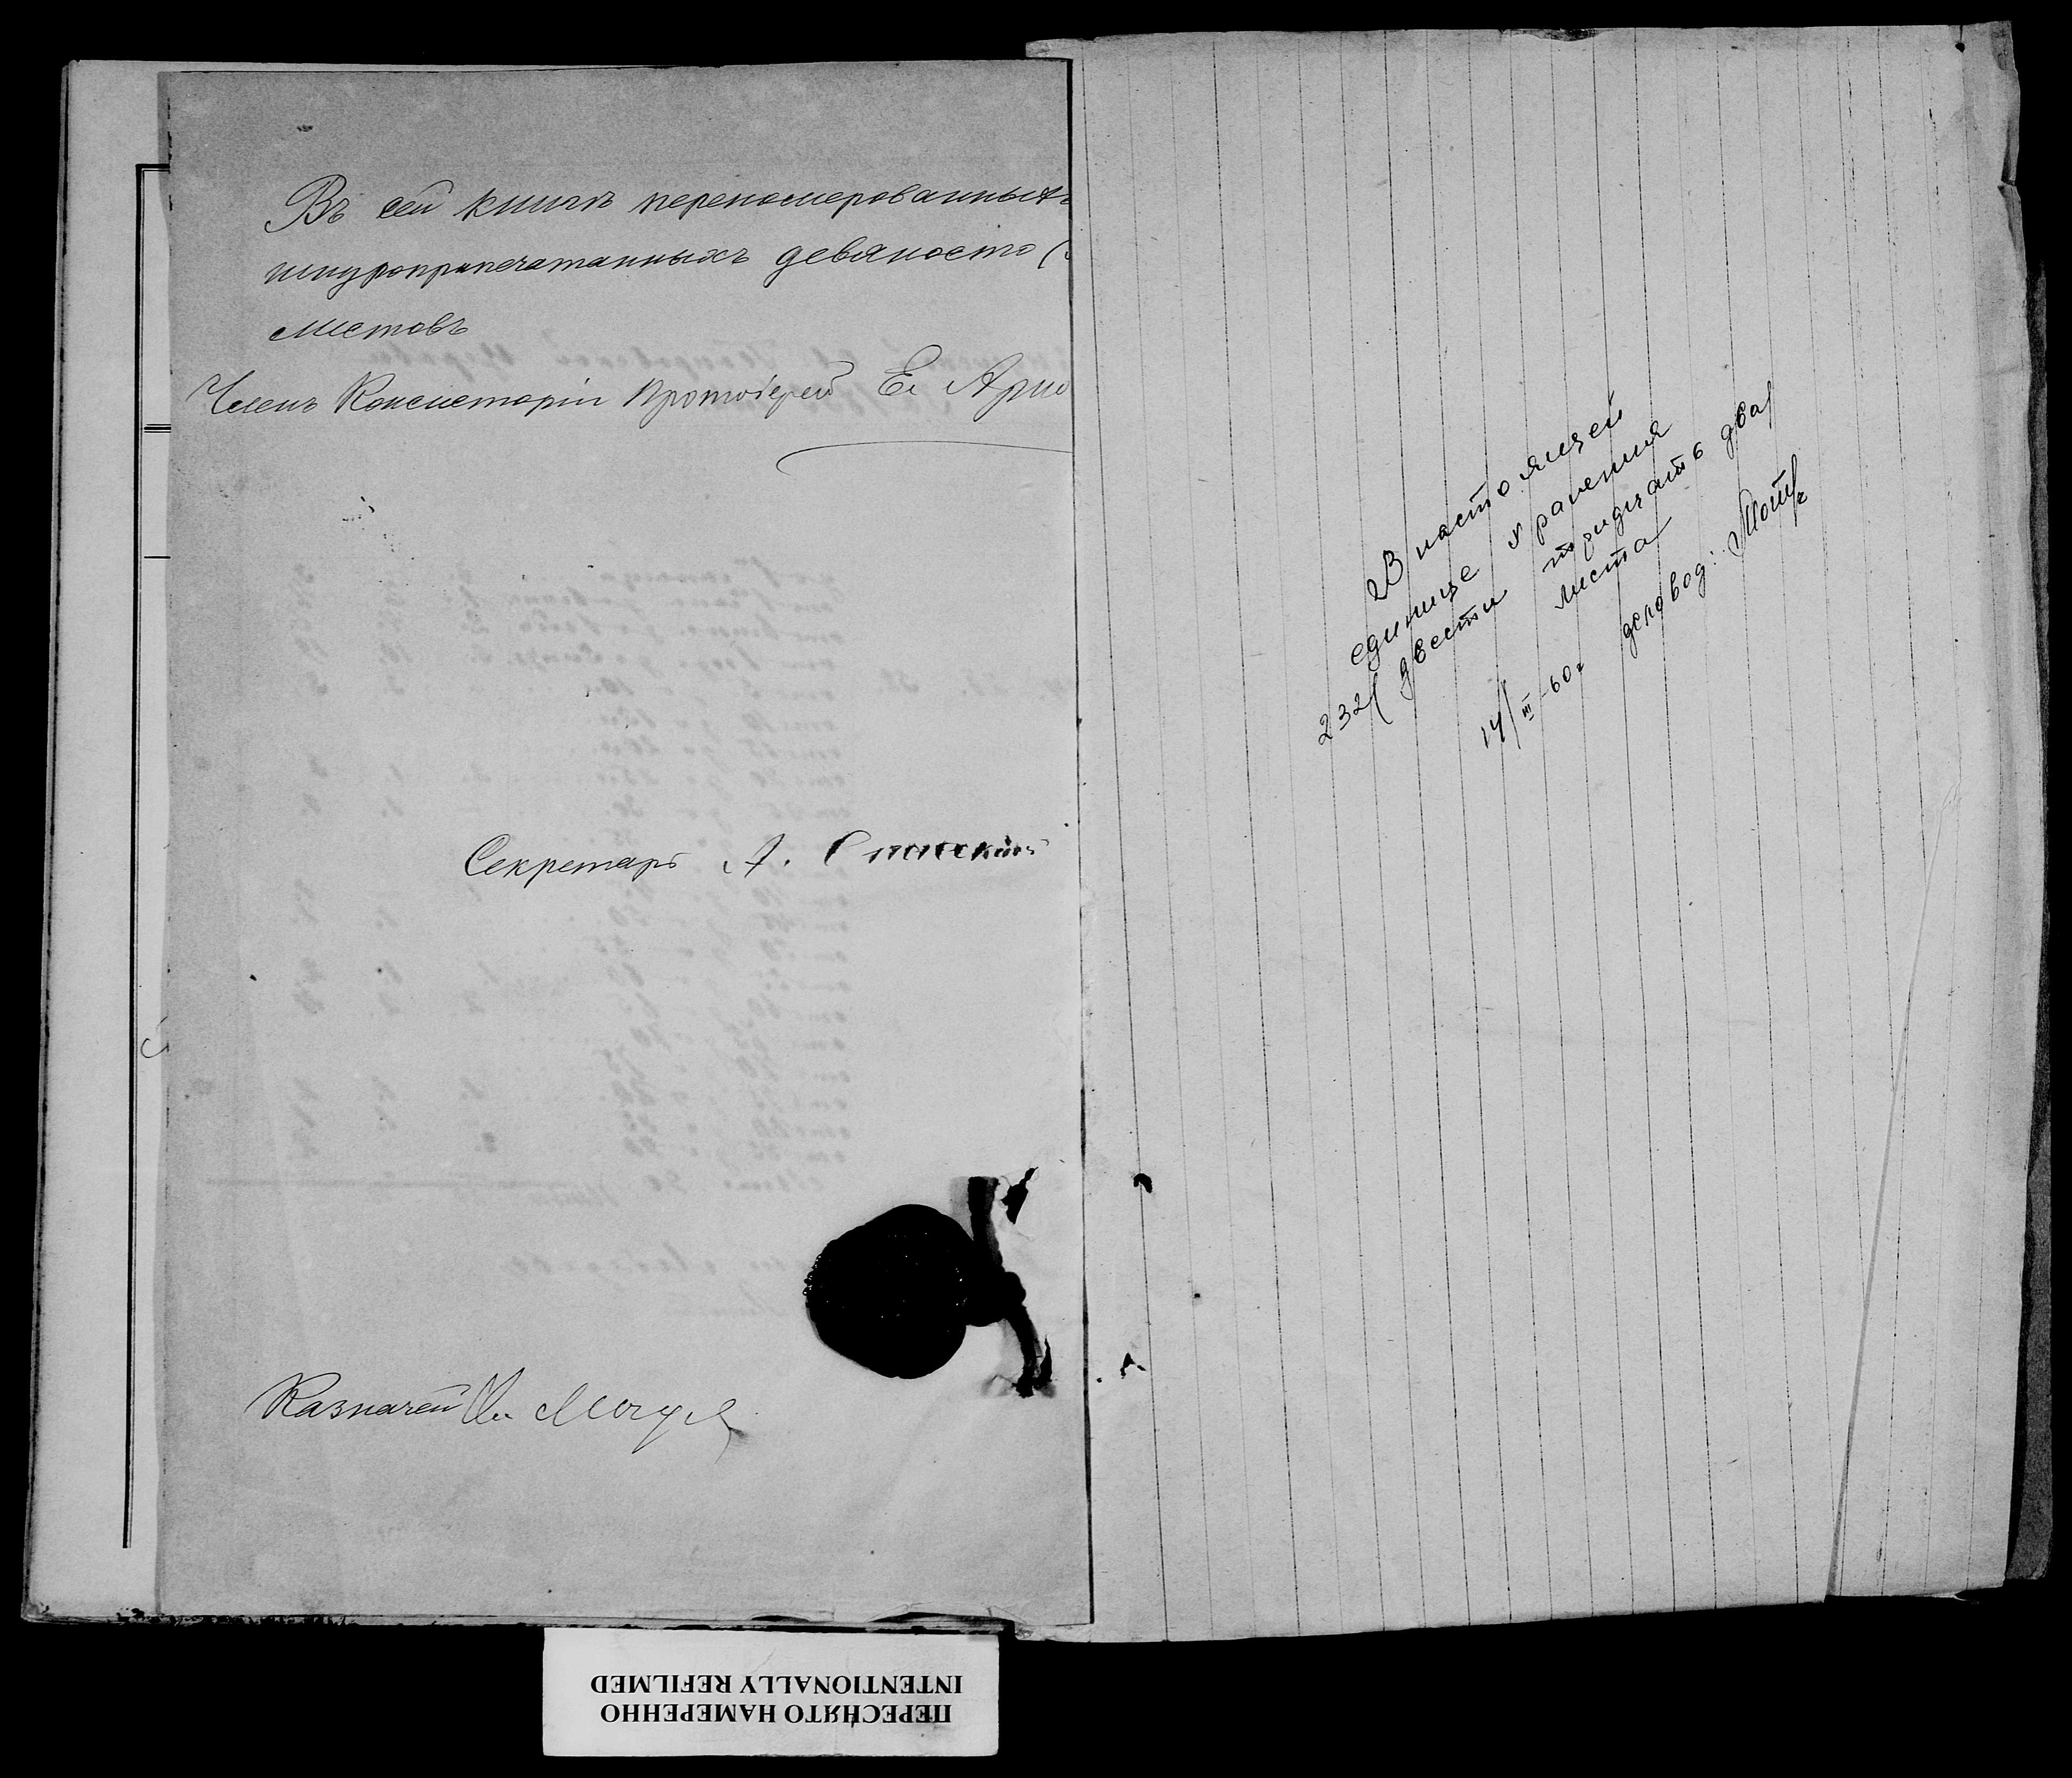 Въ сей книгѣ перенομерованныхъ
шнуроприпечатанныхъ девяносто (
листовъ
Членъ Консисторіи Протоіерей Ев
Секретарь А.
Казначей
В настоящей
единице хранения
232/ двести тридцать два/
листа
14/III-60г деловод:
ПЕРЕСНЯТО НАМЕРЕННО
INTENTIONALLY REFILMED